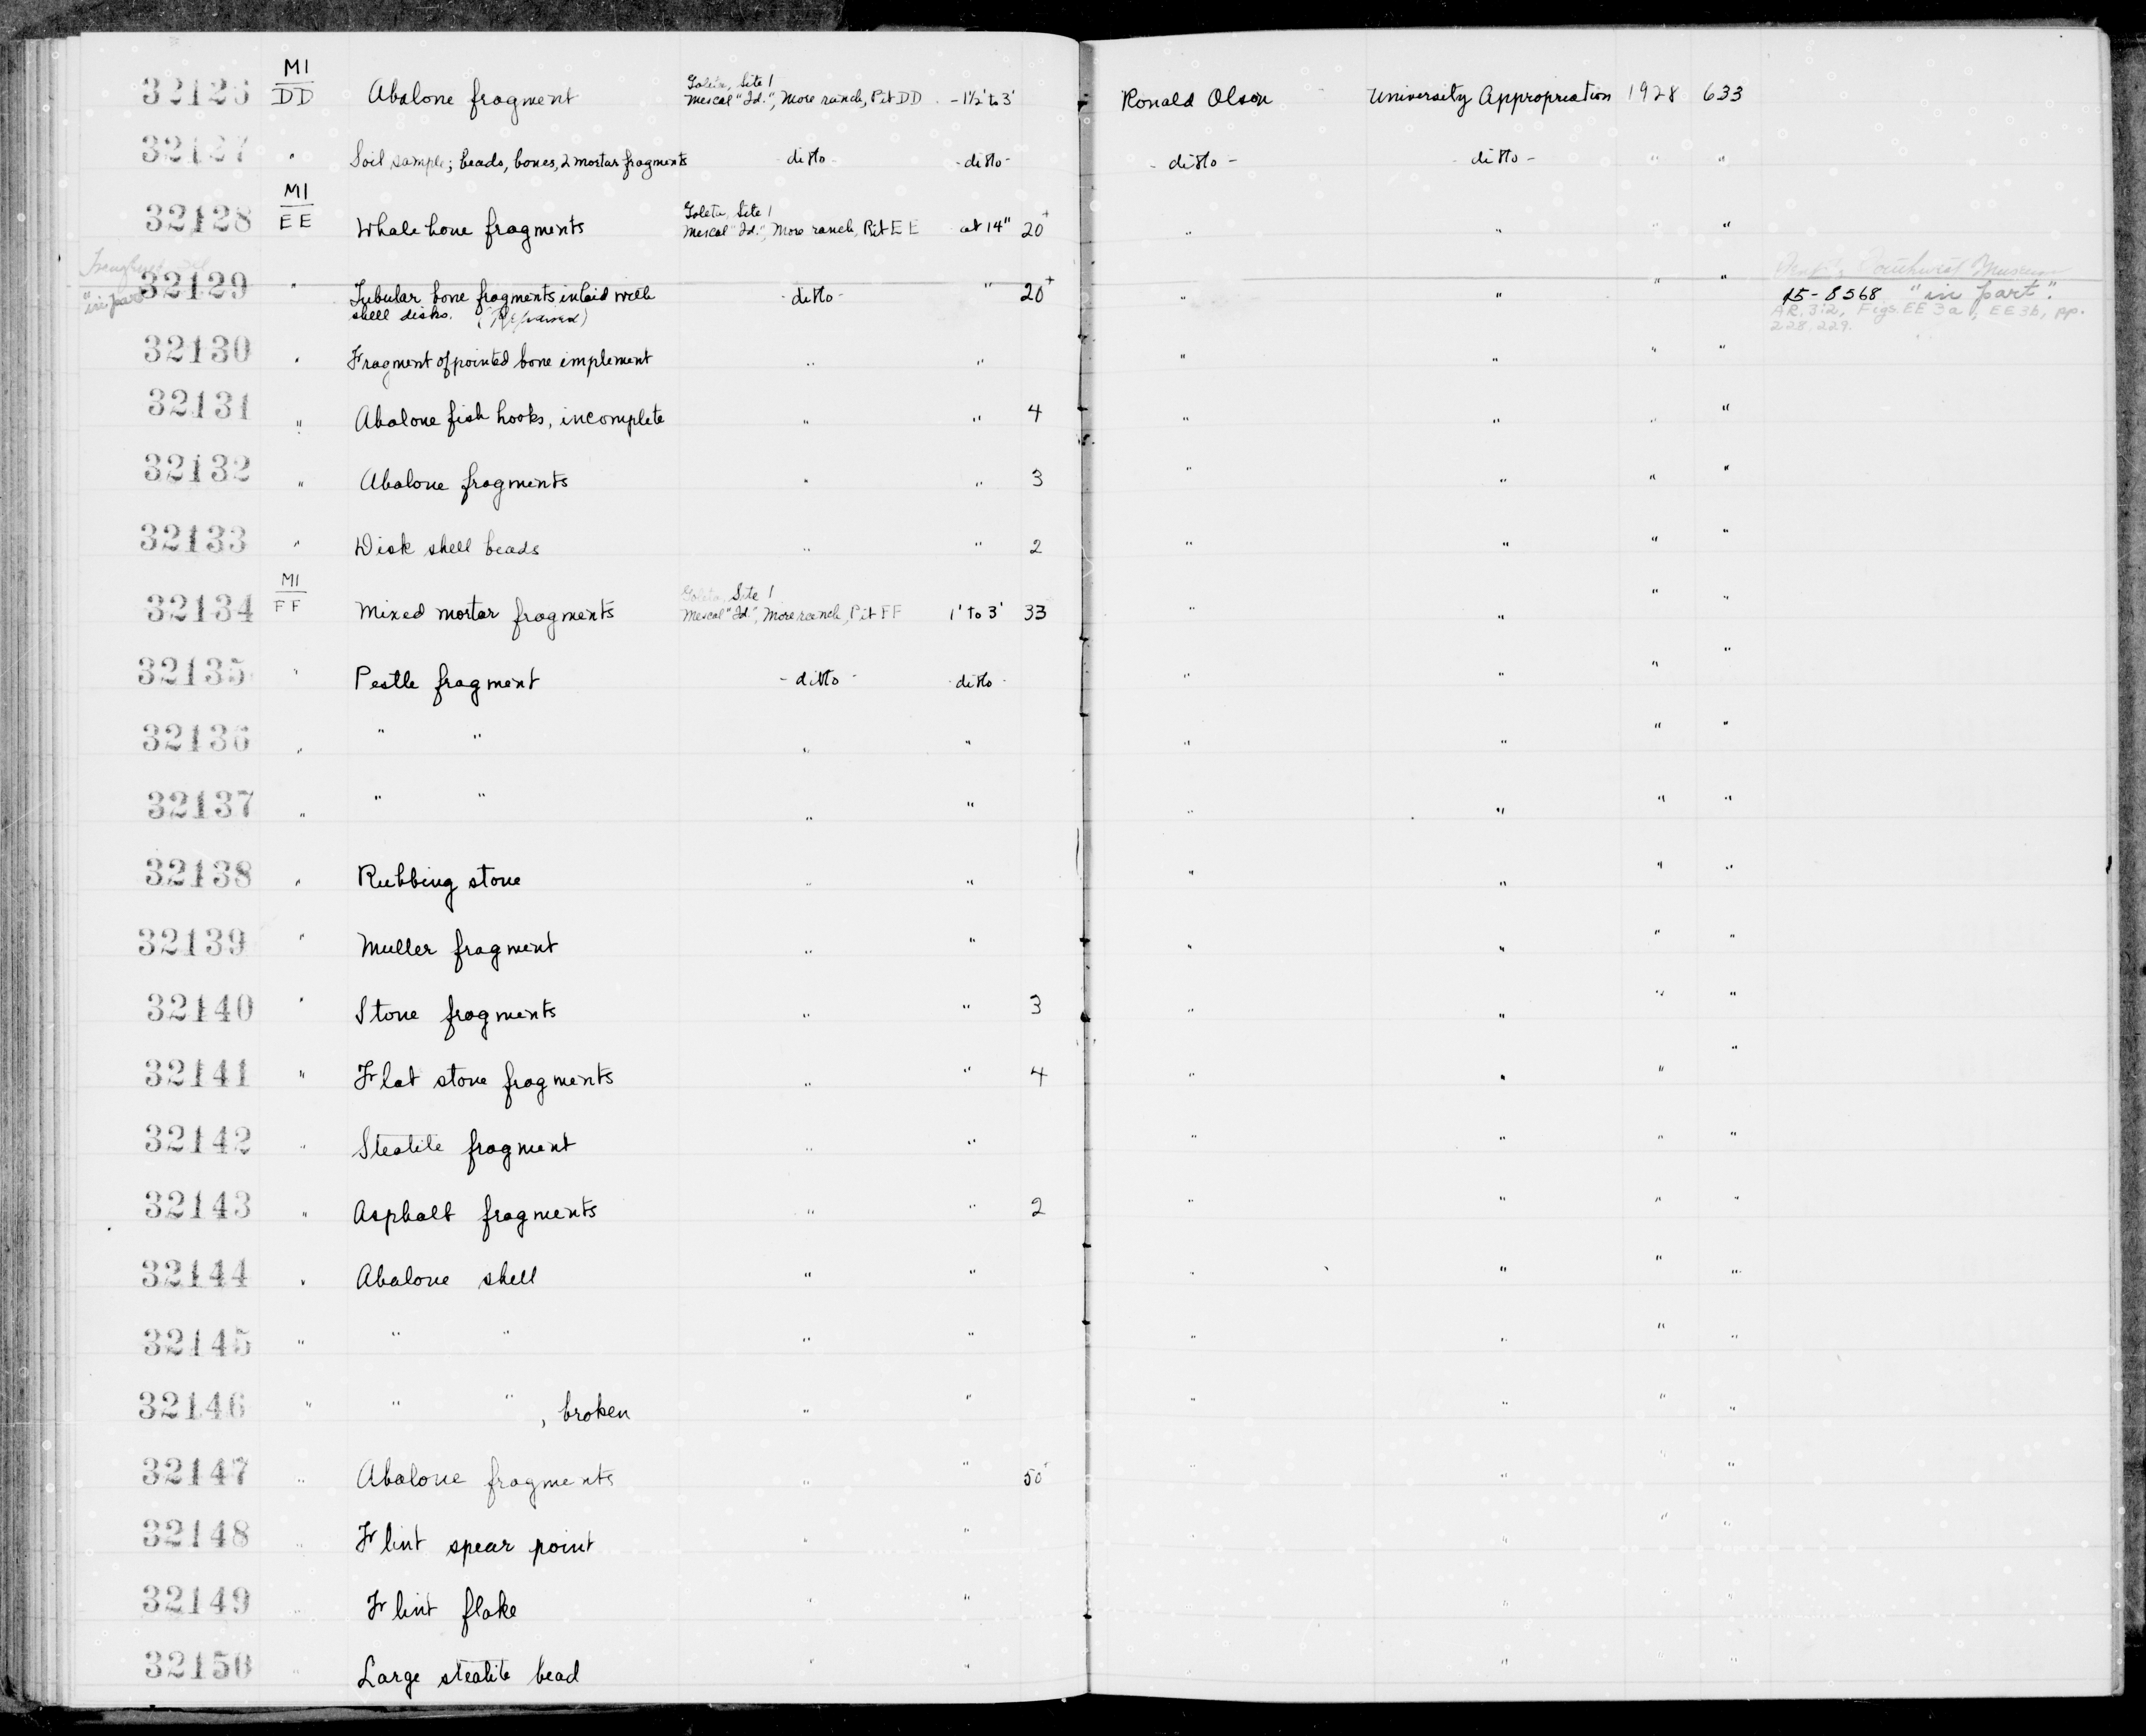 MI
Goleta, Site 1
32126 DD Abalone fragment Mescal "Id.", More ranch, Pit DD -1½' to 3' Ronald Olson University Appropriation 1928 633
32127 " Soil sample; beads, bones, 2 mortar fragments - ditto - - ditto - - ditto - - ditto - " "
MI
Goleta, Site 1
32128 EE Whale bone fragments Mescal "Id.", More ranch, Pit EE at 14" 20+ " " " "
32129 " Tubular bone fragments, inlaid with - ditto - " 20+ " " " " 15-8568 "in part".
"in part" shell disks. AR. 3:2, Figs. EE 3a, EE 3b, pp.
228, 229.
32130 " Fragment of pointed bone implement " " " " " "
32131 " Abalone fish hooks, incomplete " " 4 " " " "
32132 " Abalone fragments " " 3 " " " "
32133 " Disk shell beads " " 2 " " " "
MI
Goleta, Site 1
32134 FF Mixed mortar fragments Mescal "Id.", More ranch, Pit FF 1' to 3' 33 " " " "
32135 " Pestle fragment - ditto - - ditto - " " " "
32136 " " " " " " " " "
32137 " " " " " " " " "
32138 " Rubbing stone " " " " " "
32139 " Muller fragment " " " " " "
32140 " Stone fragments " " 3 " " " "
32141 " Flat stone fragments " " 4 " " " "
32142 " Steatite fragment " " " " " "
32143 " Asphalt fragments " " 2 " " " "
32144 " Abalone shell " " " " " "
32145 " " " " " " " " "
32146 " " " , broken " " " " " "
32147 " Abalone fragments " " 50+ " " " "
32148 " Flint spear point " " " " " "
32149 " Flint flake " " " " "
32150 " Large steatite bead " " " " " "